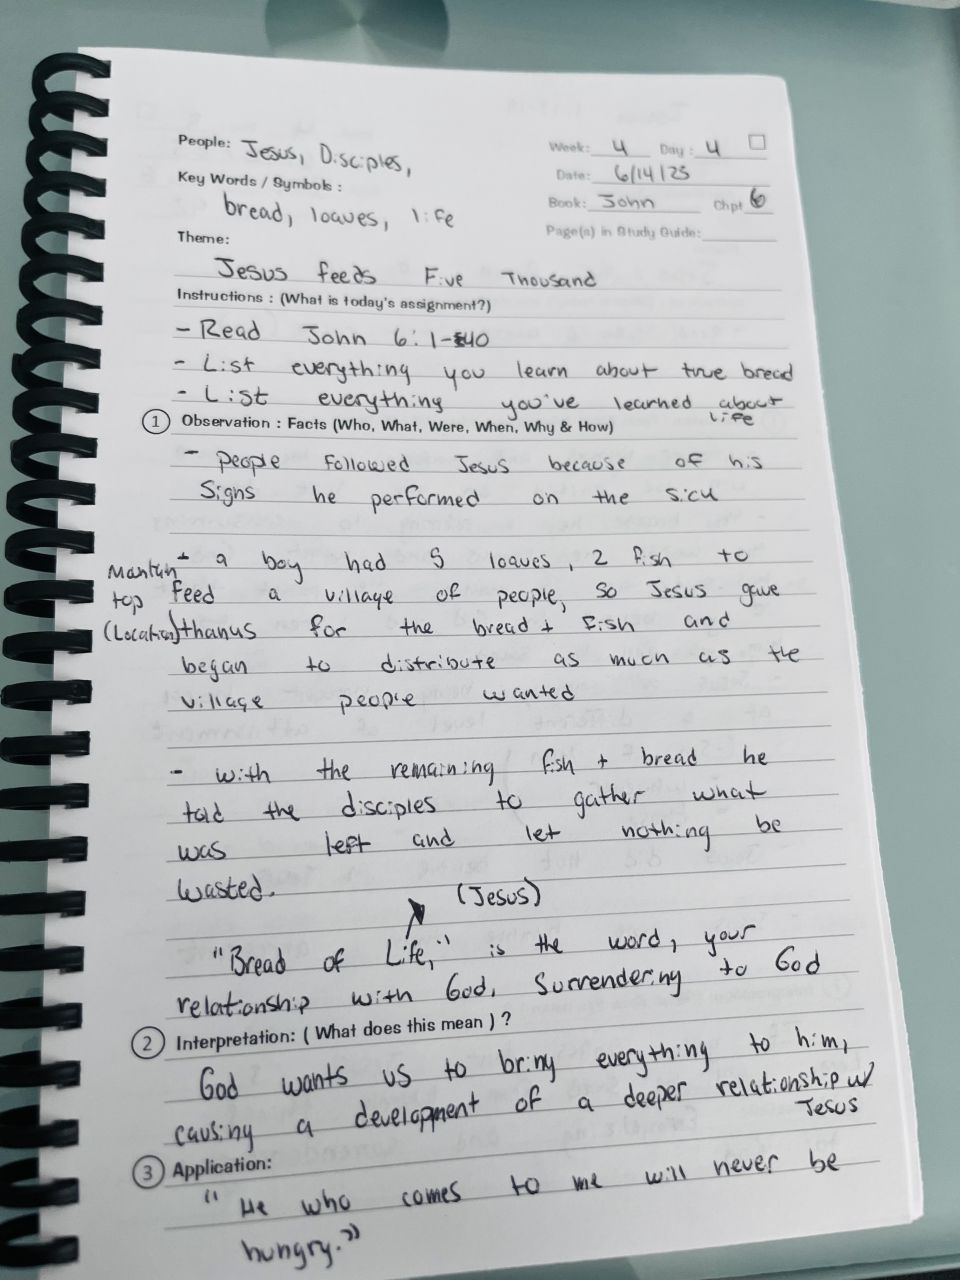 People: Jesus, Disciples,
Week: 4 Day: 4
Date: 6/14/25
Key Words / Symbols :
Book: John Chpt 6
bread, loaves, life
Page(s) in Study Guide:
Theme:
Jesus feeds Five Thousand
Instructions : (What is today's assignment?)
- Read John 6: 1-40
- List everything you learn about true bread
- List everything you've learned about
life
1 Observation : Facts (Who, What, Were, When, Why & How)
- people followed Jesus because of his
signs he performed on the sick
- a boy had 5 loaves, 2 fish to
Mantain
top
(Location)
feed a village of people, so Jesus gave
thanks for the bread + fish and
began to distribute as much as the
village people wanted
- with the remaining fish + bread he
told the disciples to gather what
was left and let nothing be
wasted.
(Jesus)
"Bread of Life," is the word, your
relationship with God, Surrendering to God
2 Interpretation: ( What does this mean ) ?
God wants us to bring everything to him,
causing a development of a deeper relationship w/
Jesus
3 Application:
"He who comes to me will never be
hungry."